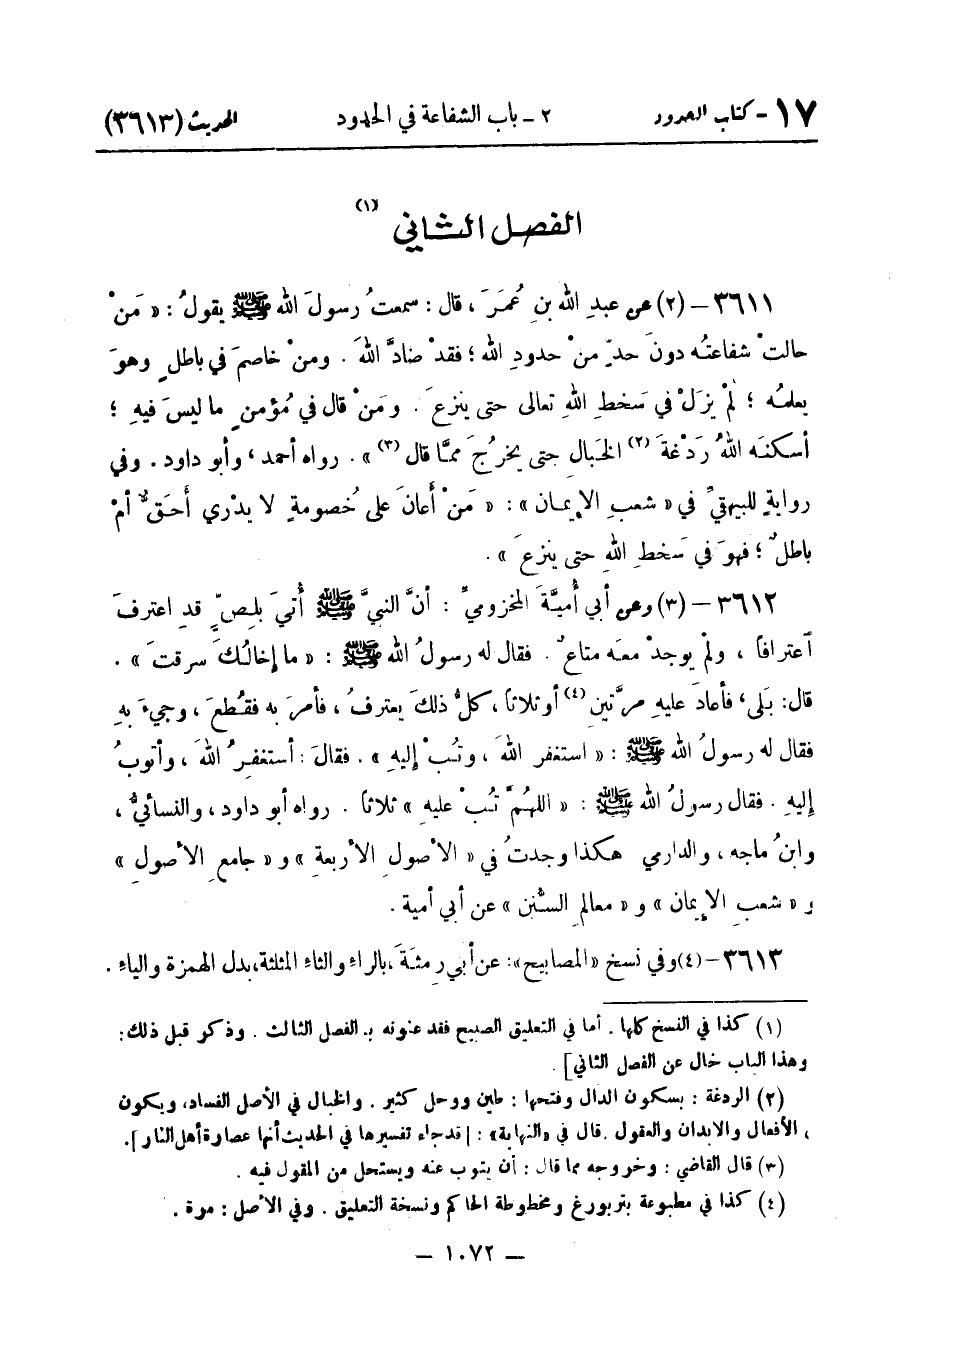 ١٧ - كتاب الحدود ٢ - باب الشفاعة في الحدود الحديث (٣٦١٣)
الفصل الثاني (١)
٣٦١١ - (٢) عن عبدِ الله بنِ عُمَرَ ، قال : سمعتُ رسولَ الله ﷺ يقولُ : « مَنْ
حالتْ شفاعتُه دونَ حدٍّ منْ حدودِ الله ؛ فقدْ ضادَّ اللهَ . ومنْ خاصمَ في باطلٍ وهوَ
يعلمُه ؛ لمْ يزَلْ في سَخطِ اللهِ تعالى حتى ينزعَ . ومَنْ قال في مُؤمنٍ ما ليسَ فيهِ ؛
أسكنَه اللهُ رَدْغةَ (٢) الخَبالِ حتى يخرُجَ ممَّا قال (٣) » . رواه أحمد ، وأبو داود . وفي
روايةٍ للبيهقيِّ في « شعبِ الإيمان » : « مَنْ أعانَ على خُصومةٍ لا يدْري أحَقٌّ أمْ
باطلٌ ؛ فهوَ في سَخطِ اللهِ حتى ينزعَ » .
٣٦١٢ - (٣) وعن أبي أُميَّةَ المخزوميِّ : أنَّ النبيَّ ﷺ أُتيَ بلِصٍّ قدِ اعترفَ
اعترافاً ، ولمْ يوجدْ معَه متاعٌ . فقال له رسولُ الله ﷺ : « ما إخالُكَ سرقتَ » .
قال: بَلى ، فأعادَ عليهِ مرَّتينِ (٤) أو ثلاثاً ، كلُّ ذلكَ يعترفُ ، فأمرَ به فقُطعَ ، وجيءَ بهِ
فقال له رسولُ الله ﷺ : « استغفر اللهَ ، وتُبْ إليهِ » . فقالَ : أستغفِرُ اللهَ ، وأتوبُ
إليهِ . فقال رسولُ الله ﷺ : « اللهُمَّ تُبْ عليهِ » ثلاثاً . رواه أبو داود ، والنسائيُّ ،
وابنُ ماجه ، والدارمي هكذا وجدتُ في « الأصولِ الأربعةِ » و « جامعِ الأصولِ »
و « شعبِ الإيمان » و « معالمِ السُّنن » عن أبي أمية .
٣٦١٣ - (٤) وفي نسخ «المصابيح»: عن أبي رِمثَةَ ،بالراءِ والثاءِ المثلثة،بدل الهمزة والياءِ .
(١) كذا في النسخ كلها . أما في التعليق الصبيح فقد عنونه بـ الفصل الثالث . وذكر قبل ذلك:
وهذا الباب خال عن الفصل الثاني] .
(٢) الردغة : بسكون الدال وفتحها : طين ووحل كثير . والخبال في الأصل الفساد، ويكون
، الأفعال والابدان والعقول .قال في «النهاية» : [قدجاء تفسيرها في الحديث أنها عصارة أهل النار].
(٣) قال القاضي : وخروجه مما قال : أن يتوب عنه ويستحل من المقول فيه .
(٤) كذا في مطبوعة بتربورغ ومخطوطة الحاكم ونسخة التعليق . وفي الأصل : مرة .
— ١٠٧٢ —